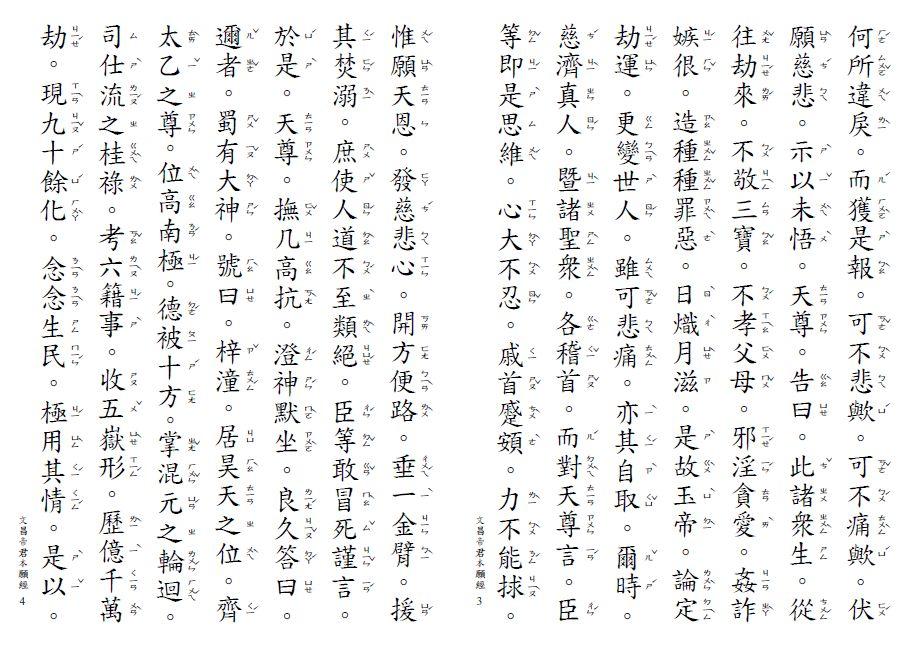 何所違戾。而獲是報。可不悲歟。可不痛歟。伏
願慈悲。示以未悟。天尊。告曰。此諸眾生。從
往劫來。不敬三寶。不孝父母。邪淫貪愛。姦詐
嫉很。造種種罪惡。日熾月滋。是故玉帝。論定
劫運。更變世人。雖可悲痛。亦其自取。爾時。
慈濟真人。暨諸聖眾。各稽首。而對天尊言。臣
等即是思維。心大不忍。戚首蹙頞。力不能捄。
文昌帝君本願經 3
惟願天恩。發慈悲心。開方便路。垂一金臂。援
其焚溺。庶使人道不至類絕。臣等敢冒死謹言。
於是。天尊。撫几高抗。澄神默坐。良久答曰
邇者。蜀有大神。號曰。梓潼。居昊天之位。齊
太乙之尊。位高南極。德被十方。掌混元之輪迴
司仕流之桂祿。考六籍事。收五嶽形。歷億千萬
劫。現九十餘化。念念生民。極用其情。是以。
文昌帝君本願經 4